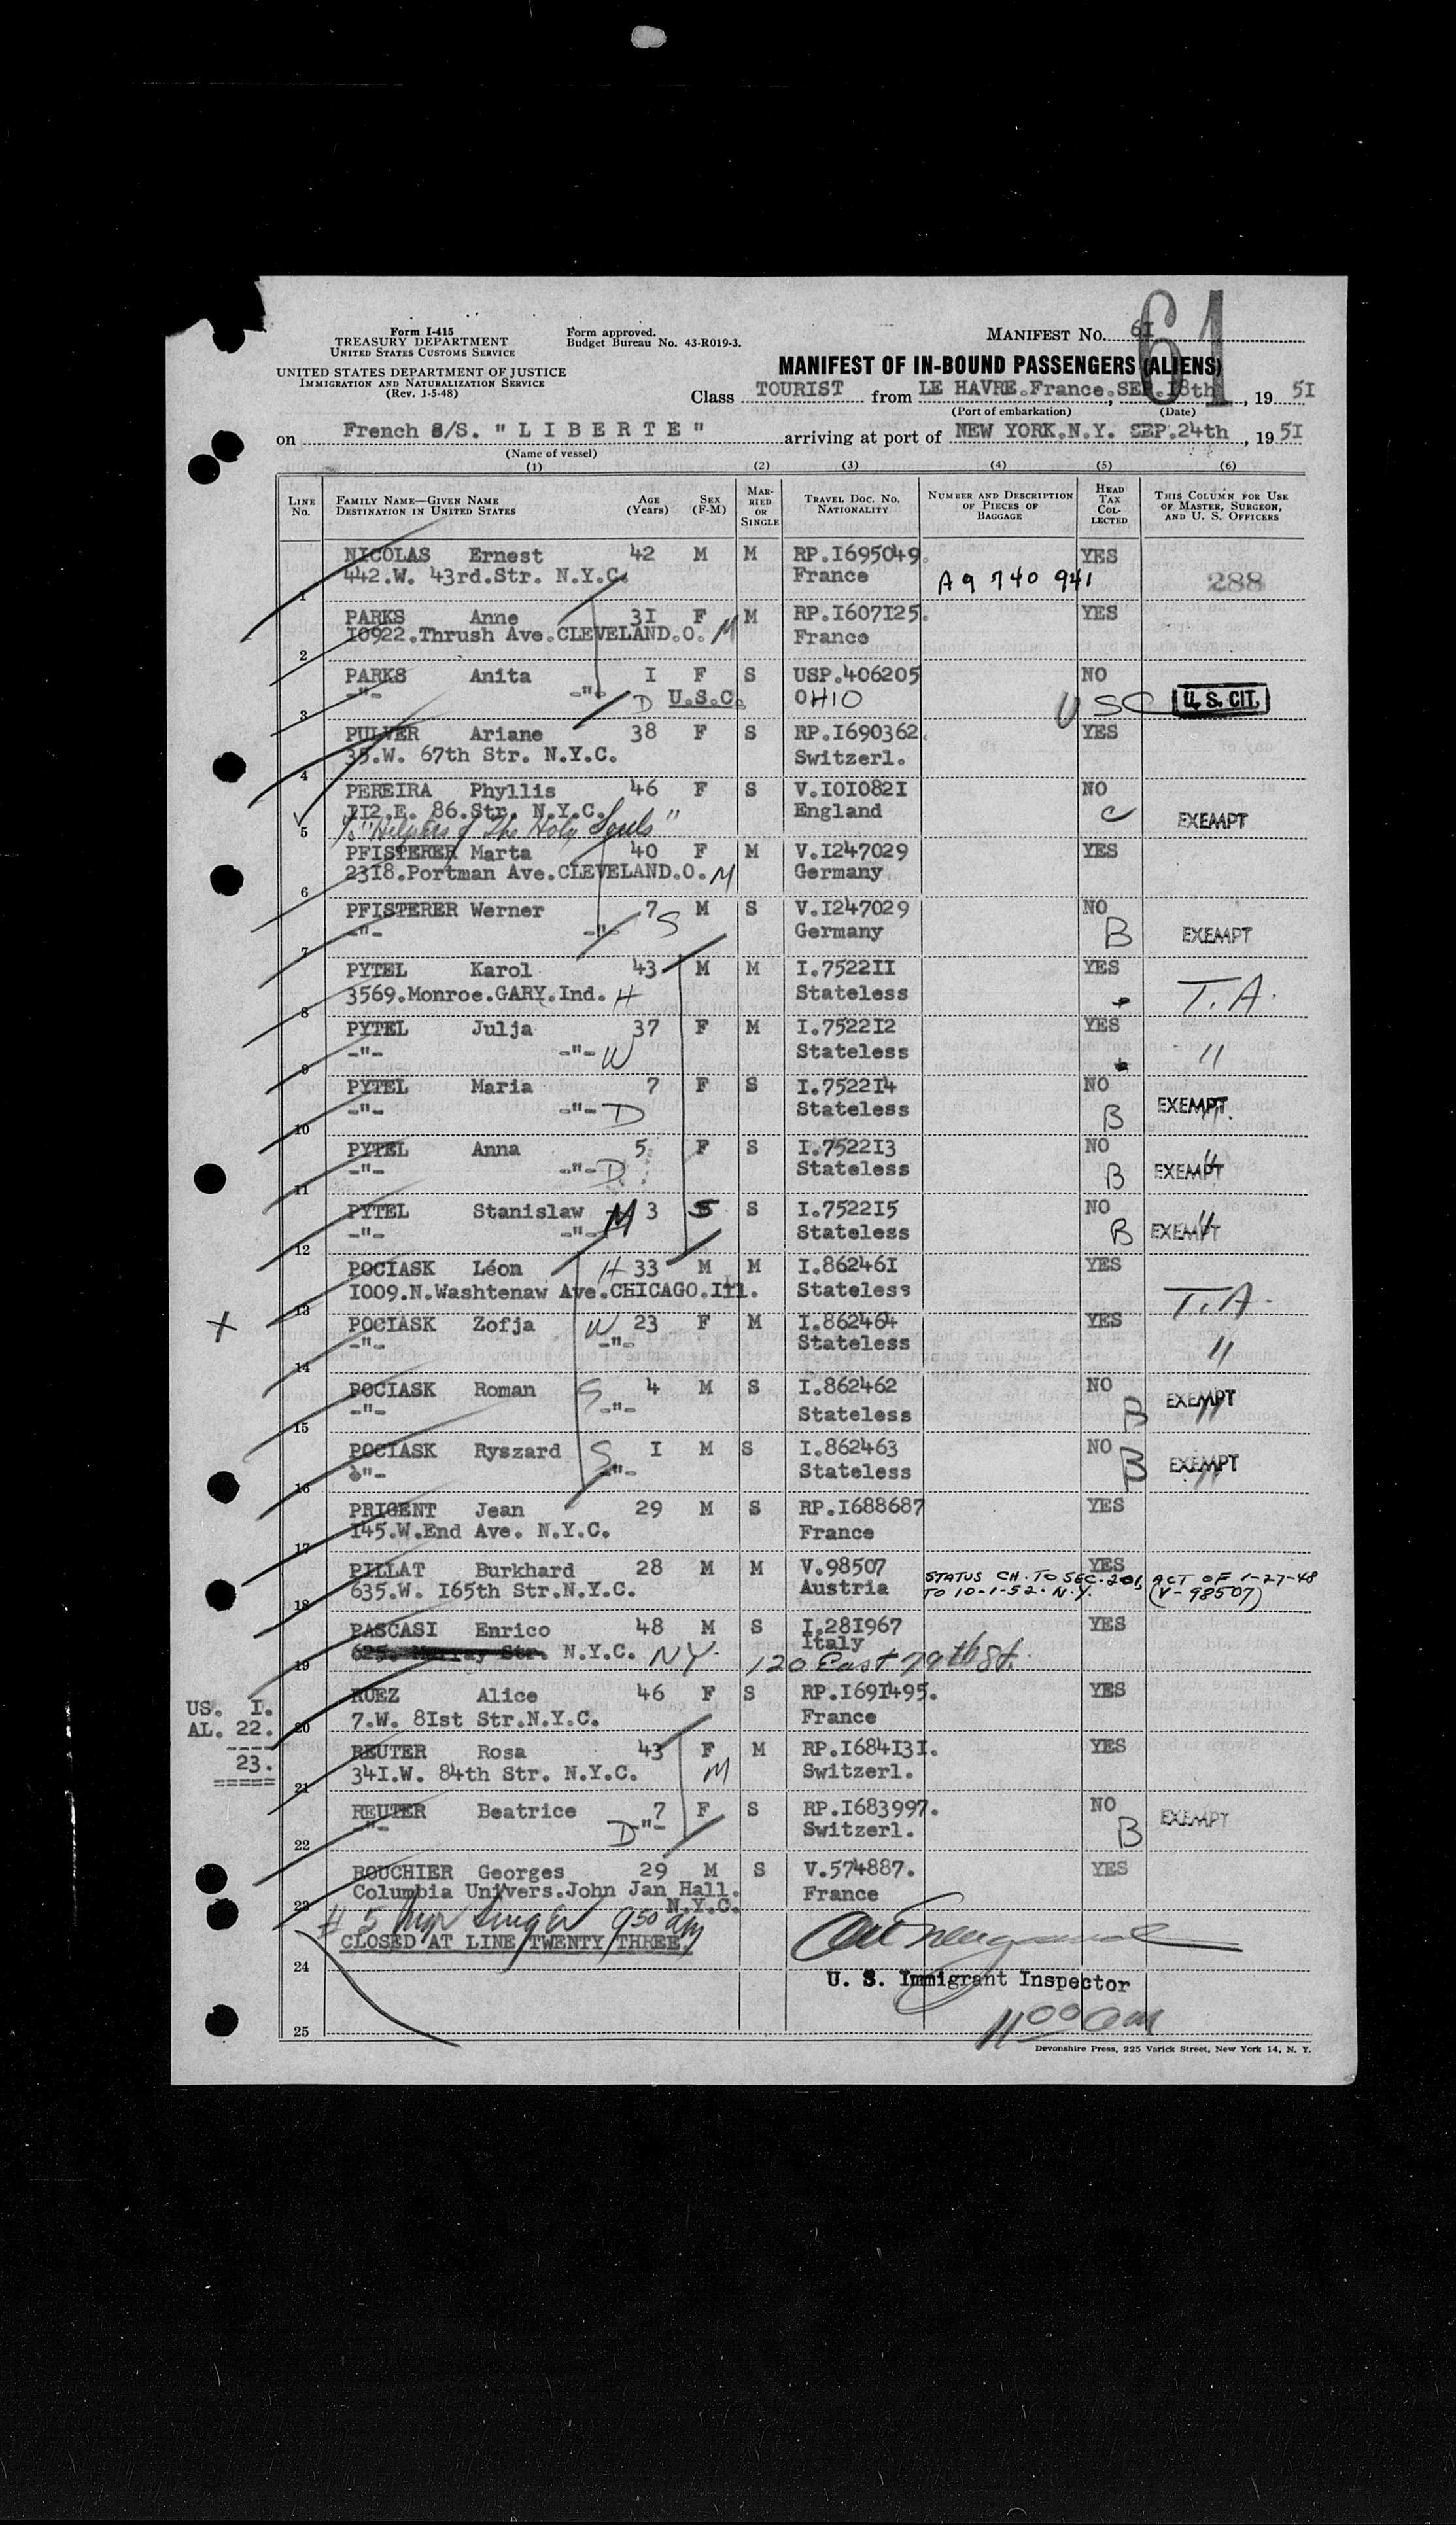 Form I-415
TREASURY DEPARTMENT
UNITED STATES CUSTOMS SERVICE
UNITED STATES DEPARTMENT OF JUSTICE
IMMIGRATION AND NATURALIZATION SERVICE
(Rev. 1-5-48)
Form approved.
Budget Bureau No. 43-R019-3.
MANIFEST No. 61
61
MANIFEST OF IN-BOUND PASSENGERS (ALIENS)
Class TOURIST from LE HAVRE.France., SEP.18th, 19 51
(Port of embarkation) (Date)
on French S/S. "LIBERTE" arriving at port of NEW YORK.N.Y. SEP.24th, 19 51
(Name of vessel)
(1) (2) (3) (4) (5) (6)
LINE No. FAMILY NAME—GIVEN NAME DESTINATION IN UNITED STATES AGE (Years) SEX (F-M) MARRIED OR SINGLE TRAVEL DOC. NO. NATIONALITY NUMBER AND DESCRIPTION OF PIECES OF BAGGAGE HEAD TAX COLLECTED THIS COLUMN FOR USE OF MASTER, SURGEON, AND U. S. OFFICERS
NICOLAS Ernest 42 M M RP.I695049. YES
1 442.W. 43rd.Str. N.Y.C. France A9 740 941 288
PARKS Anne 3I F M RP.I607I25. YES
2 I0922.Thrush Ave.CLEVELAND.O. M France
PARKS Anita I F S USP.406205 NO
3 -"- -"- D U.S.C. OHIO USC U.S. CIT.
PULVER Ariane 38 F S RP.I690362. YES
4 35.W. 67th Str. N.Y.C. Switzerl.
PEREIRA Phyllis 46 F S V.I0I082I NO
5 II2.E. 86.Str. N.Y.C. England C EXEMPT
"Helpers of The Holy Souls"
PFISTERER Marta 40 F M V.I247029 YES
6 23I8.Portman Ave.CLEVELAND.O. M Germany
PFISTERER Werner 7 M S V.I247029 NO
7 -"- -"- S Germany B EXEMPT
PYTEL Karol 43 M M I.7522II YES
8 3569.Monroe.GARY.Ind. H Stateless T.A.
PYTEL Julja 37 F M I.7522I2 YES
9 -"- -"- W Stateless "
PYTEL Maria 7 F S I.7522I4 NO
10 -"- -"- D Stateless B EXEMPT "
PYTEL Anna 5 F S I.7522I3 NO
11 -"- -"- D Stateless B EXEMPT "
PYTEL Stanislaw M 3 S I.7522I5 NO
12 -"- -"- Stateless B EXEMPT "
POCIASK Léon H 33 M M I.86246I YES
13 I009.N.Washtenaw Ave.CHICAGO.Ill. Stateless T.A.
POCIASK Zofja W 23 F M I.862464 YES
14 -"- -"- Stateless "
POCIASK Roman S 4 M S I.862462 NO
15 -"- -"- Stateless B EXEMPT "
POCIASK Ryszard S I M S I.862463 NO
16 -"- -"- Stateless B EXEMPT "
PRIGENT Jean 29 M S RP.I688687 YES
17 I45.W.End Ave. N.Y.C. France
PILLAT Burkhard 28 M M V.98507 YES
18 635.W. I65th Str.N.Y.C. Austria STATUS CH. TO SEC. 201, ACT OF 1-27-48
TO 10-1-52. N.Y. (V-98507)
PASCASI Enrico 48 M S I.28I967 YES
19 625. Murray Str. N.Y.C. NY. Italy 120 East 79th St.
RUEZ Alice 46 F S RP.I69I495. YES
20 7.W. 8Ist Str.N.Y.C. France
US. I.
AL. 22.
23.
REUTER Rosa 43 F M RP.I684I3I. YES
21 34I.W. 84th Str. N.Y.C. M Switzerl.
REUTER Beatrice 7 F S RP.I683997. NO
22 -"- D -"- Switzerl. B EXEMPT
BOUCHIER Georges 29 M S V.574887. YES
23 Columbia Univers.John Jan Hall. France
N.Y.C.
# 5 950 am
CLOSED AT LINE TWENTY THREE
24 U. S. Immigrant Inspector
1100 am
25
Devonshire Press, 225 Varick Street, New York 14, N. Y.